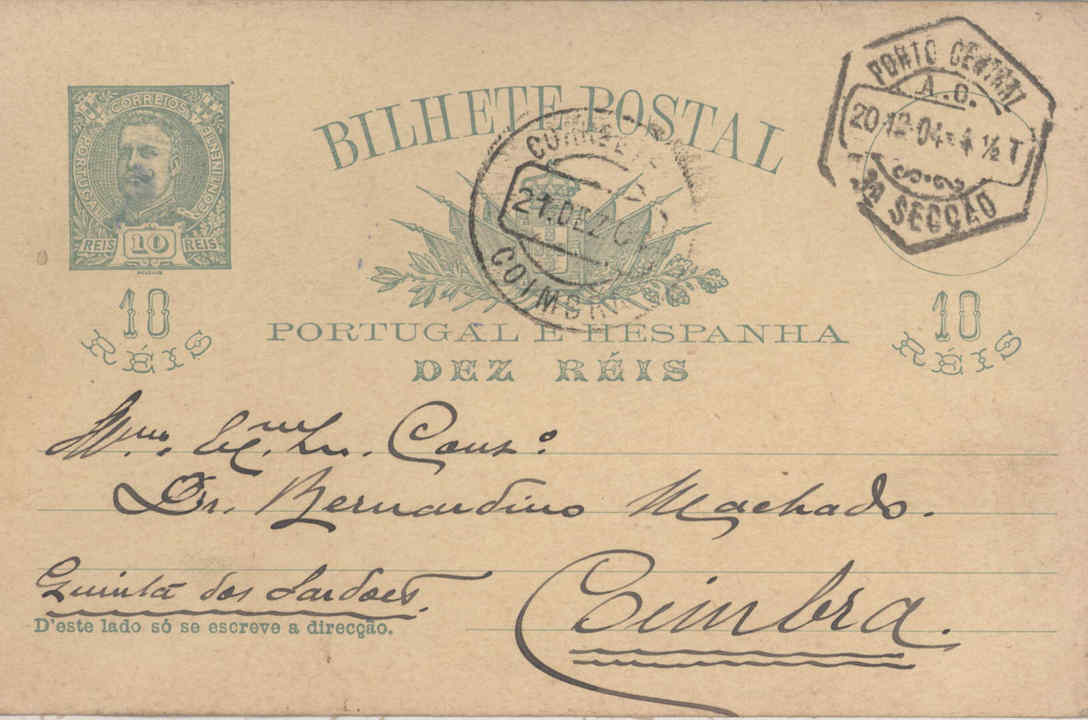 BILHETE POSTAL
CORREIOS
PORTUGAL
CONTINENTE
REIS 10 REIS
PORTO CENTRAL
A.O.
20-12-04 = 4 ½ T
SECÇÃO
CORREIO
21.DEZ
COIMBRA
10
RÉIS
PORTUGAL E HESPANHA
DEZ RÉIS
10
RÉIS
Illmo. Exmo. Sr. Consº.
Dr. Bernardino Machado.
Quinta dos Sardões.
Coimbra.
D'este lado só se escreve a direcção.